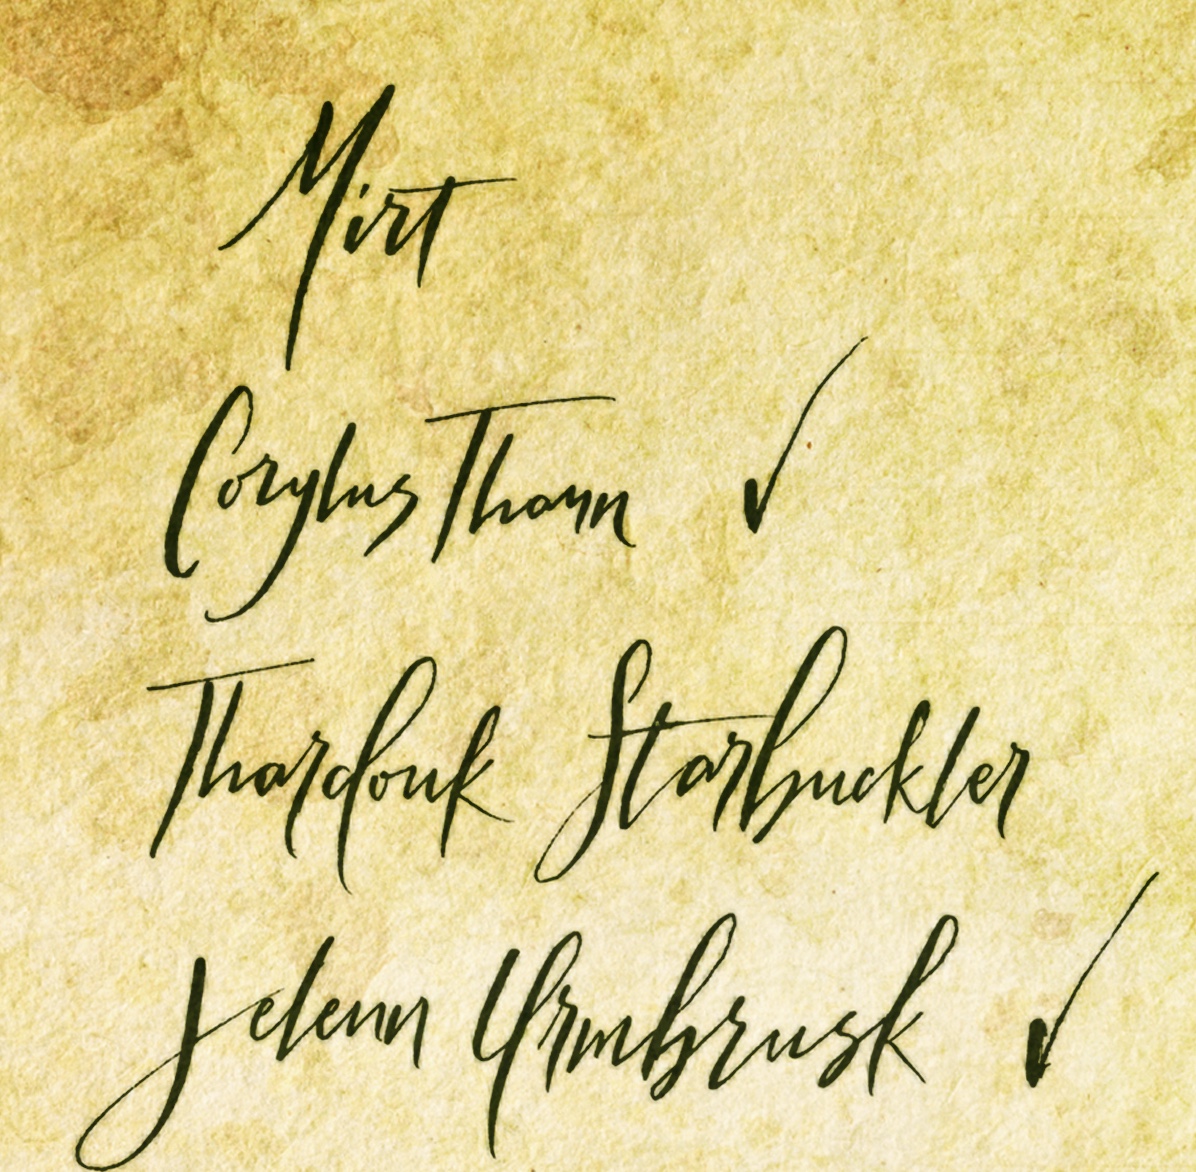 Mirt
Corylus Thann ✓
Thardouk Starbuckler
Jelenn Urmbrusk ✓